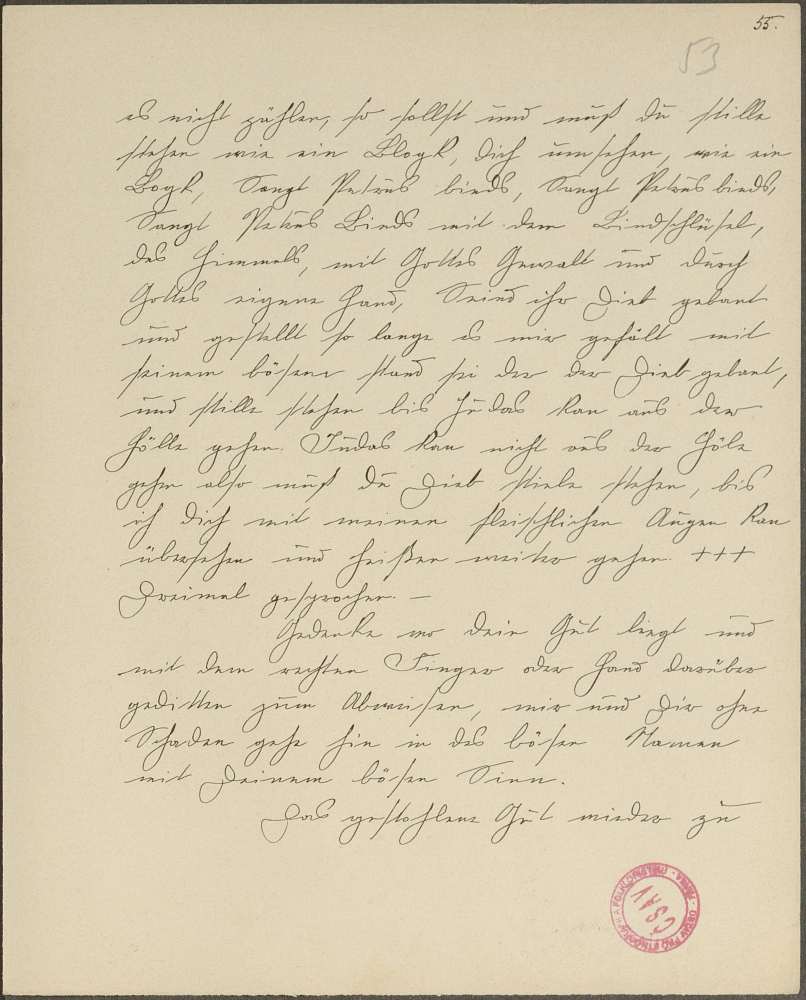 55.
53
es nicht zählen, so sollst und mußt du stille
stehen wie ein Blogk, dich umsehen, wie ein
Bogk, Sangt Petrus binds, Sangt Petrus binds,
Sangt Petrus Binds mit dem Bindschlüsel,
des Himmels, mit Gottes Gewalt und durch
Gottes eigene Hand, Seind ihr Dieb gebant
und gestellt so lange es mir gefält mit
seinem bösene stand sei der der Dieb gebant,
und stille stehen bis Judas kan aus der
Hölle gehen. Judas kan nicht aus der Höle
gehen also mußt du Dieb stiele stehen, bis
ich dich mit meinen fleischlichen Augen kan
übersehen und heißen weiter gehen. +++
Dreimal gesprochen. —
Gedenke wo dein Gut liegt und
mit dem rechten Finger oder Hand darüber
geditten zum Abweisen, mir und Dir ohne
Schaden gehe hin in des bösen Namen
mit Deinem bösen Sinn.
Das gestohlene Gut wieder zu
ČSAV